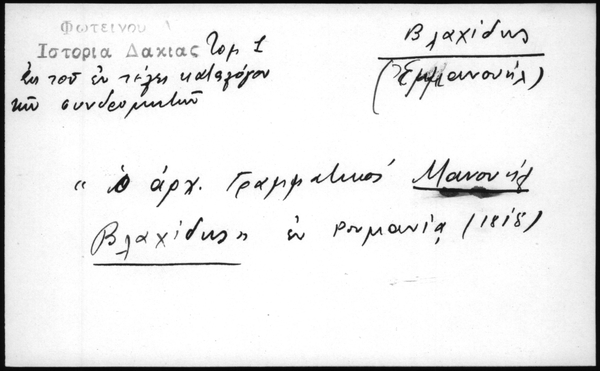 Φωτεινου
Ιστορια Δακιας Τομ 1
Ἐκ τοῦ ἐν τέλει καταλόγου
τῶν συνδρομητῶν
Βλαχίδης
(Ἐμμανουήλ)
"ὁ ἀρχ. Γραμματικός Μανουήλ
Βλαχίδης" ἐν Ρουμανίᾳ (1818)